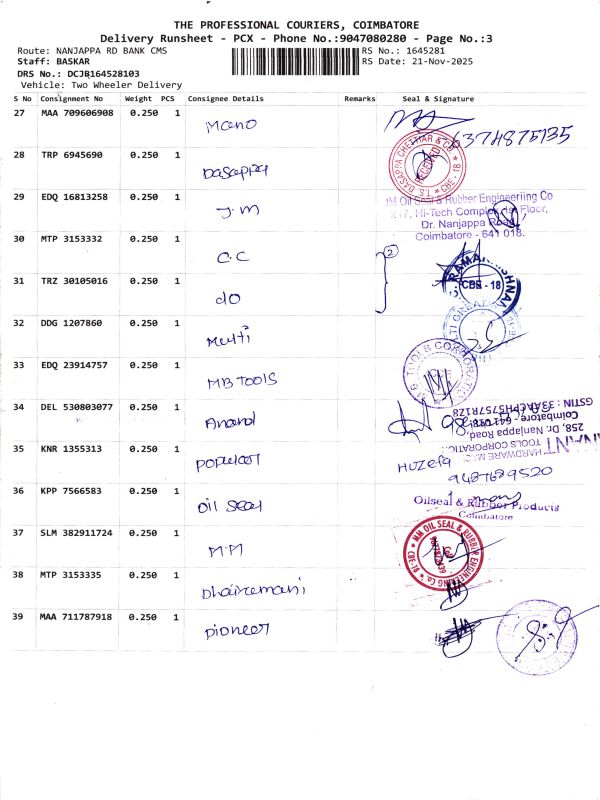 THE PROFESSIONAL COURIERS, COIMBATORE
Delivery Runsheet - PCX - Phone No.:9047080280 - Page No.:3
Route: NANJAPPA RD BANK CMS
RS No.: 1645281
Staff: BASKAR
RS Date: 21-Nov-2025
DRS No.: DCJB164528103
Vehicle: Two Wheeler Delivery
S No Consignment No Weight PCS Consignee Details Remarks Seal & Signature
27 MAA 709606908 0.250 1 Mano 6374875135
28 TRP 6945690 0.250 1 Dasappa
DASAPPA CHETTIAR & CO
RECEIVED
CBE - 18
29 EDQ 16813258 0.250 1 J.M
Oil Seal & Rubber Engineering Co
Hi-Tech Complex, Ist Floor,
Dr. Nanjappa Road,
Coimbatore - 641 018.
30 MTP 3153332 0.250 1 C.C 2
CBE - 18
31 TRZ 30105016 0.250 1 do
32 DDG 1207860 0.250 1 Multi
33 EDQ 23914757 0.250 1 MB TOOLS
34 DEL 530803077 0.250 1 Anand
258, Dr. Nanjappa Road,
HARDWARE
TOOLS CORPORATION
35 KNR 1355313 0.250 1 Popular Huzefa
9487689520
36 KPP 7566583 0.250 1 Oil Seal
Oilseal & Rubber Products
Coimbatore
37 SLM 382911724 0.250 1 M.M
MM OIL SEAL & RUBBER ENGINEERING Co
38 MTP 3153335 0.250 1 Dhairemani
39 MAA 711787918 0.250 1 Pioneer